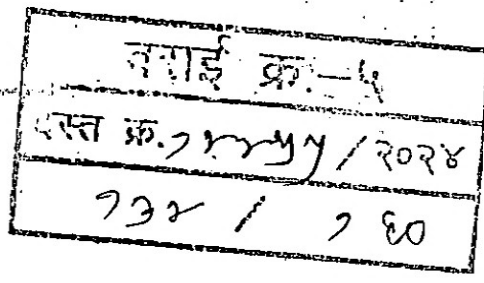 वसई क्र.-५
दस्त क्र. १२२५५ / २०२४
१३२ / १६०